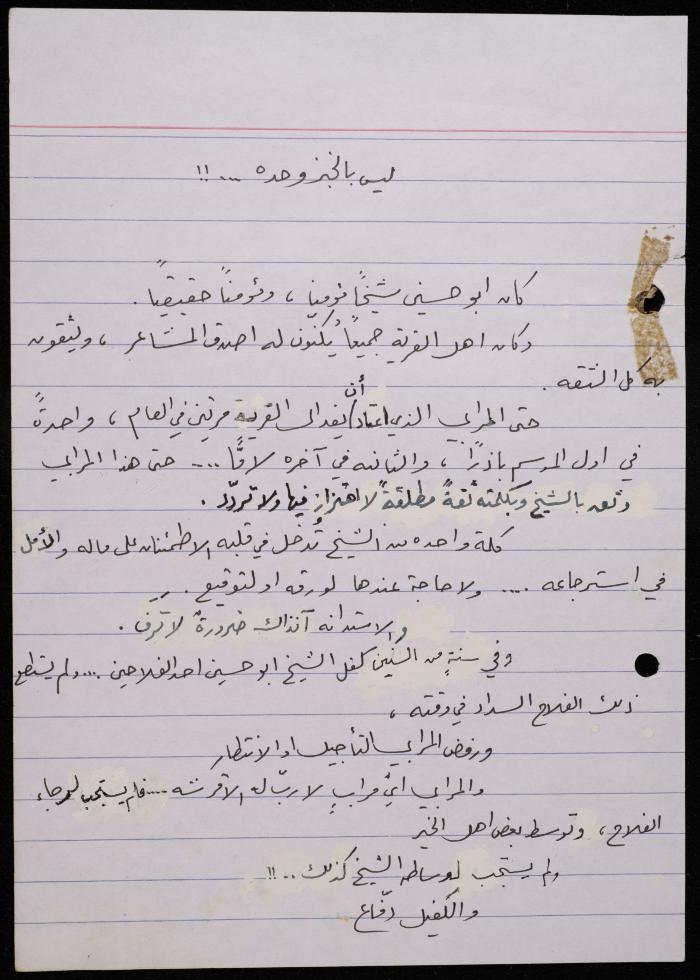 ليس بالخبز وحده ... !!
كان ابو حسين شيخًا مؤمنا ، ومؤمناً حقيقياً .
وكان اهل القرية جميعاً يُكنون له اصدق المشاعر ، ويثقون
به كل الثقه .
حتى المرابي الذي اعتاد أن يفد الى القرية مرتين في العام ، واحدةً
في اول الموسم باذرًا ، والثانيه في آخره لامًّا .... حتى هذا المرابي
وثق بالشيخ وبكلمته ثقةً مطلقةً لا اهتزاز فيها ولا تردّد .
كلمة واحده من الشيخ تُدخل في قلبه الاطمئنان على ماله والأمل
في استرجاعه .... ولا حاجة عندها لورقه او لتوقيع .
والاستدانه آنذاك ضرورةٌ لا ترف .
وفي سنةٍ من السنين كفل الشيخ ابو حسين احد الفلاحين .... ولم يستطع
ذلك الفلاح السداد في وقته ،
ورفض المرابي التأجيل او الانتظار
والمرابي ايُّ مرابٍ لا ربّ له الا قرشه .... فلم يستجب لرجاء
الفلاح ، وتوسط بعض اهل الخير
ولم يستجب لوساطه الشيخ كذلك .. !!
والكفيل دفّاع